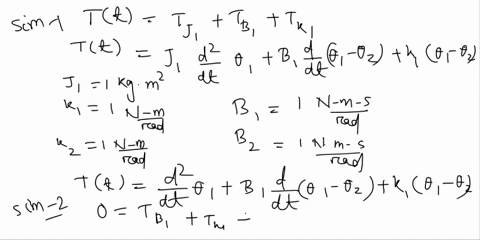 sim-1 T(t) = T_J₁ + T_B₁ + T_k₁
T(t) = J₁ d²/dt θ₁ + B₁ d/dt (θ₁-θ₂) + k₁ (θ₁-θ₂)
J₁ = 1 kg·m²
k₁ = 1 N-m/rad B₁ = 1 N-m-s/rad
k₂ = 1 N-m/rad B₂ = 1 N m-s/rad
T(t) = d²/dt θ₁ + B₁ d/dt (θ₁-θ₂) + k₁ (θ₁-θ₂)
sim-2 0 = T_B₁ + T_k₁ =